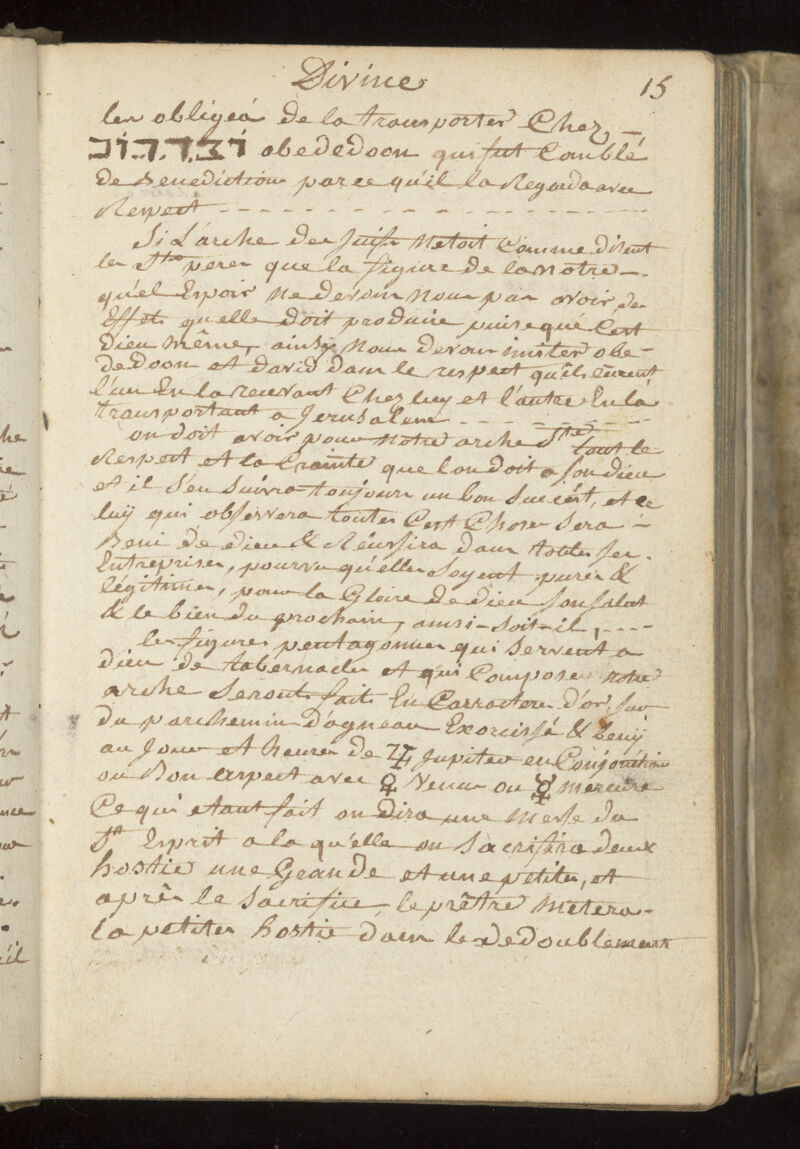 Divine 15
les obligea de la transporter Chez
obededoon qui fut Comblé
de Benediction parce qu'il la Regarda avec
Respect
Si L'arche des Juifs Netoit Comme disent
les Sts peres que la figure de la notre
qu'el Espoir ne devons nous pas avoir, des
Effets quelle doit produire puisque C'est
Dieu même, ainsy nous devons imiter obe-
dedoon et david dans le respect qu'ils eurent
l'un En la recevant Chez luy et l'autre En la
transportant a Jerusalem
on doit avoir pour notre arche Ste tout le
Respect et la Crainte que l'on doit a son dieu
et il s'en suivra toujours un bon succést, et ce
luy qui observera toutes Cest Choses sera
Beni de dieu & Réussira dans toutes ses
Entreprises, pourvu qu'elles soyent pures &
légitimes, pour la Gloire de dieu son salut
& le bien du prochain, ainsi-soit-il,
les figures pentagonnes qui servent a
dieu de tabernacles et qui Compose notre
arche seront fait En Carractere d'or, sur
du parchemin d'agneau Exorcissé & beny
au Jour et heures de ♃ Jupiter en Conjonction
ou Bon aspect avec ♀ Venus ou ☿ mercure
Ce qui etant fait on dira une Messe du
St Esprit a la qu'elle on Sacrifira deux
hostie une Grande et une petites, et
après le Sacrifice le prêtre Metera
la petites hostie dans le dedoublement